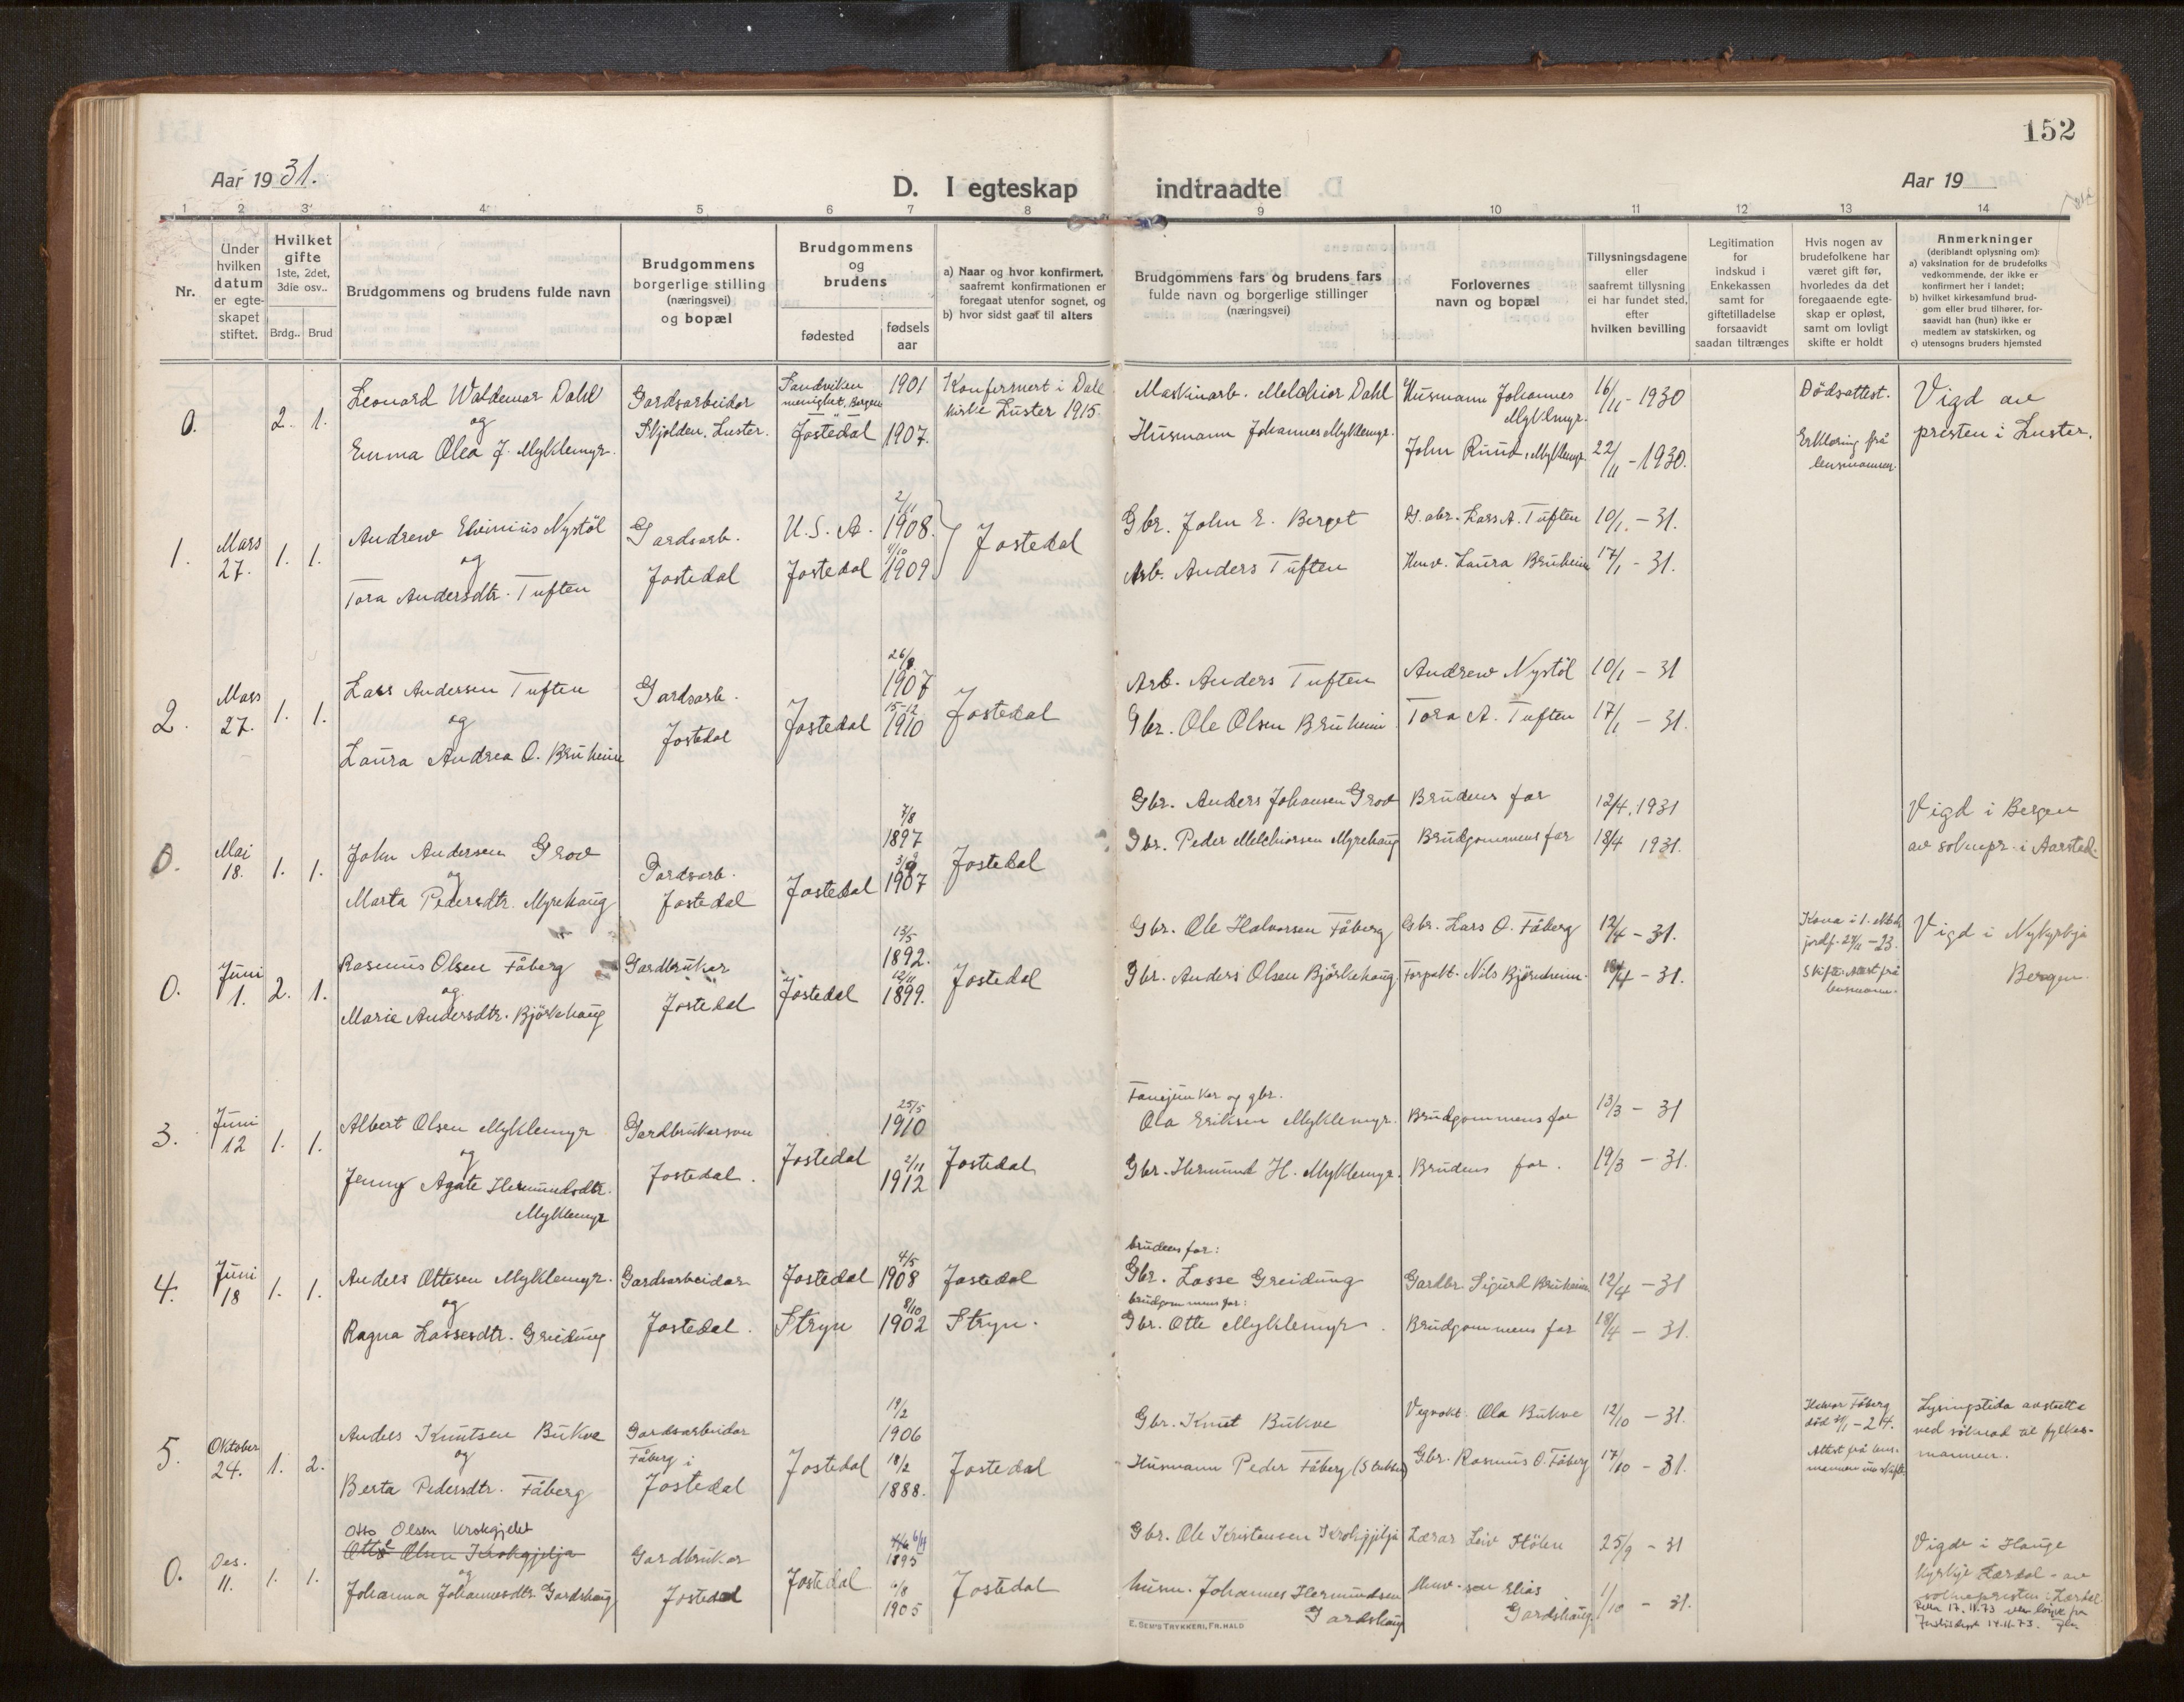 152
Aar 1931.
D. I egteskap indtraadte
Aar 19
1 2 3 4 5 6 7 8 9 10 11 12 13 14
Nr.
Under hvilken datum er egte-skapet stiftet.
Hvilket gifte 1ste, 2det, 3die osv..
Brdg.. Brud
Brudgommens og brudens fulde navn
Brudgommens borgerlige stilling (næringsvei) og bopæl
Brudgommens og brudens
fødested
fødsels aar
a) Naar og hvor konfirmert, saafremt konfirmationen er foregaat utenfor sognet, og
b) hvor sidst gaat til alters
Brudgommens fars og brudens fars fulde navn og borgerlige stillinger (næringsvei)
Forlovernes navn og bopæl
Tillysningsdagene eller saafremt tillysning ei har fundet sted, efter hvilken bevilling
Legitimation for indskud i Enkekassen samt for giftetilladelse forsaavidt saadan tiltrænges
Hvis nogen av brudefolkene har været gift før, hvorledes da det foregaaende egte-skap er opløst, samt om lovligt skifte er holdt
Anmerkninger (deriblandt oplysning om):
a) vaksination for de brudefolks vedkommende, der ikke er konfirmert her i landet;
b) hvilket kirkesamfund brud-gom eller brud tilhører, for-saavidt han (hun) ikke er medlem av statskirken, og
c) utensogns bruders hjemsted
0. 2. 1.
Leonard Waldemar Dahl
og
Emma Olea J. Myklemyr.
Gardsarbeidar
Skjolden, Luster.
Sandviken menighet, Bergen 1901
Jostedal 1907.
Konfirmert i Dale
kirke Luster 1915.
Maskinarb. Melchior Dahl
Husmann Johannes Myklemyr.
Husmann Johannes Myklemyr.
John Ruud, Myklemyr.
16/11 - 1930
22/11 - 1930.
Dødsattest.
Erklæring frå lensmannen.
Vigd av
presten i Luster.
1. Mars 27. 1. 1.
Andrew Elvinius Nystöl
og
Tora Andersdtr. Tuften
Gardsarb.
Jostedal
U.S.A. 2/11 1908.
Jostedal 4/10 1909
Jostedal
Gbr. John E. Berget
Arb. Anders Tuften
G.abr. Lars A. Tuften
Husv. Laura Bruheim
10/1 - 31.
17/1 - 31.
2. Mars 27. 1. 1.
Lars Andersen Tuften
og
Laura Andrea O. Bruheim
Gardsarb.
Jostedal
Jostedal
26/8 1907
15-12 1910
Jostedal
Arb. Anders Tuften
Gbr. Ole Olsen Bruheim
Andrew Nystöl
Tora A. Tuften
10/1 - 31
17/1 - 31.
0. Mai 18. 1. 1.
John Andersen Grov
og
Marta Pedersdtr. Myrehaug
Gardsarb.
Jostedal
Jostedal
7/8 1897
1907
Jostedal
Gbr. Anders Johansen Grov
Gbr. Peder Melchiorsen Myrehaug
Brudens far
Brudgommens far
12/4. 1931
18/4 1931.
Vigd i Bergen
av soknepr. i Aarstad.
0. Juni 1. 2. 1.
Rasmus Olsen Fåberg
og
Marie Andersdtr. Björkehaug
Gardbrukar
Jostedal
Jostedal
13/5 1892.
12/11 1899.
Jostedal
Gbr. Ole Halvorsen Fåberg
Gbr. Anders Olsen Björkehaug
Gbr. Lars O. Fåberg
Forpakt. Nils Björnheim.
12/4 - 31.
18/4 - 31.
Kona i 1. ekteskap
jordf. 24/11 - 23.
Skifte-Attest frå lensmann.
Vigd i Nykyrkja
Bergen.
3. Juni 12 1. 1.
Albert Olsen Myklemyr
og
Jenny Agate Hermundsdtr.
Myklemyr
Gardbrukarson
Jostedal.
Jostedal
25/5 1910
2/11 1912
Jostedal
Fanejunker og gbr.
Ola Eriksen Myklemyr.
Gbr. Hermund H. Myklemyr.
Brudgommens far
Brudens far.
13/3 - 31
19/3 - 31.
4. Juni 18 1. 1.
Anders Ottesen Myklemyr.
og
Ragna Lassesdtr. Greidung
Gardsarbeidar
Jostedal.
Jostedal 4/5 1908 Jostedal
Stryn 8/10 1902 Stryn.
brudens far:
Gbr. Lasse Greidung
brudgommens far:
Gbr. Otte Myklemyr.
Gardbr. Sigurd Bruheim
Brudgommens far
12/4 - 31
18/4 - 31.
5. Oktober 24. 1. 2.
Anders Knutsen Bukve
og
Berta Pedersdtr. Fåberg
Gardsarbeidar
Fåberg i
Jostedal
Jostedal
19/2 1906
18/2 1888.
Jostedal
Gbr. Knut Bukve
Husmann Peder Fåberg (Stubben)
Vegvokt. Ola Bukve
Gbr. Rasmus O. Fåberg
12/10 - 31.
17/10 - 31.
Halvor Fåberg
Attest frå lens-
mannen
Lysningstida avstutta
ved söknad til fylkes-
mannen.
0. Des. 11. 1. 1.
Otto Olsen Krokgjelet
Otto Olsen Krokgjelja
og
Johanna Johannesdtr. Gardshaug
Gardbrukar
Jostedal
Jostedal
1895
1905
Jostedal
Gbr. Ole Kristensen Krokgjelja
husm. Johannes Hermundsen
Gardshaug
Lærar Leiv Stölen
Husv.son Elias
Gardshaug.
25/9 - 31
1/10 - 31.
Vigde i Hauge
kyrkje Lærdal - av
soknepresten i Lærdal.
E. SEM'S TRYKKERI, FR. HALD